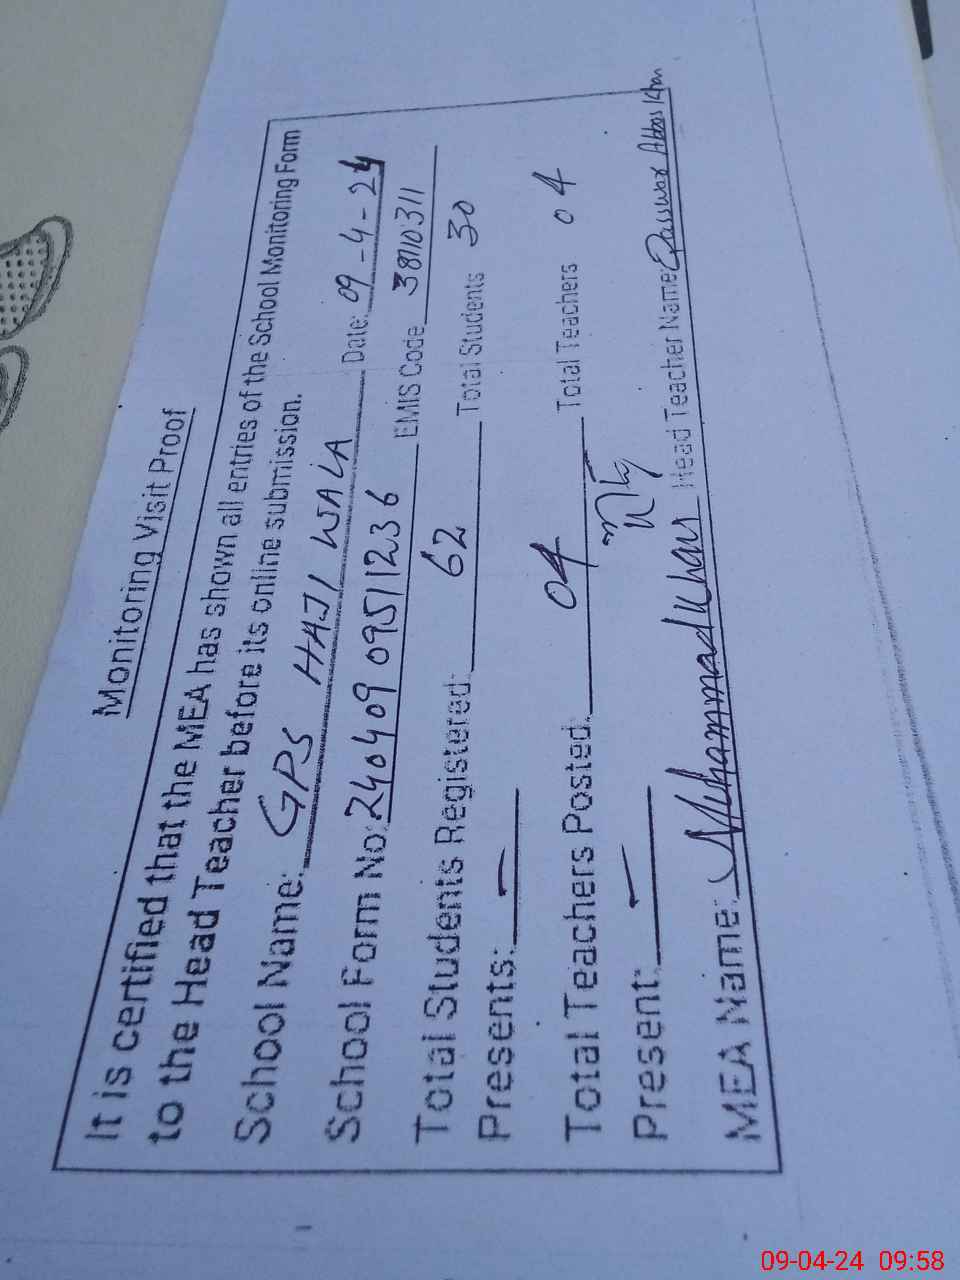 Monitoring Visit Proof
It is certified that the MEA has shown all entries of the School Monitoring Form
to the Head Teacher before its online submission.
School Name: GPS HAJI WALA Date: 09-4-24
School Form No: 240409 0951 1236 EMIS Code 38110311
Total Students Registered: 62 Total Students 30
Presents: —
Total Teachers Posted: 04 Total Teachers 04
Present: —
MEA Name: Muhammad Khan Head Teacher Name: Abbas Khan
09-04-24 09:58